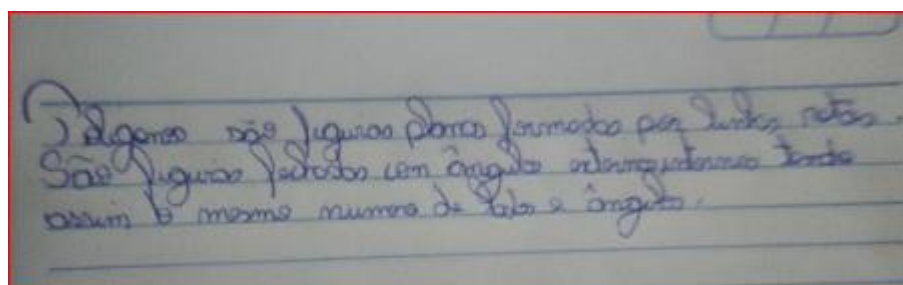 Poligonos são figuras planas formadas por linhas retas.
São figuras fechadas com ângulos tendo
assim o mesmo numero de lados e ângulos.